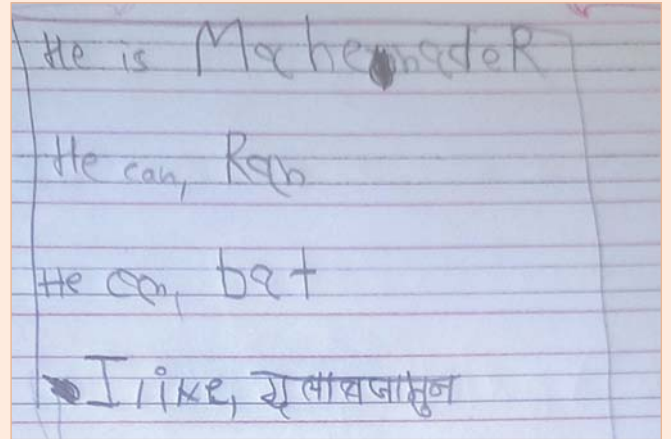 He is MahenadeR
He can, Ran
He can, bat
I like, गुलाबजामुन